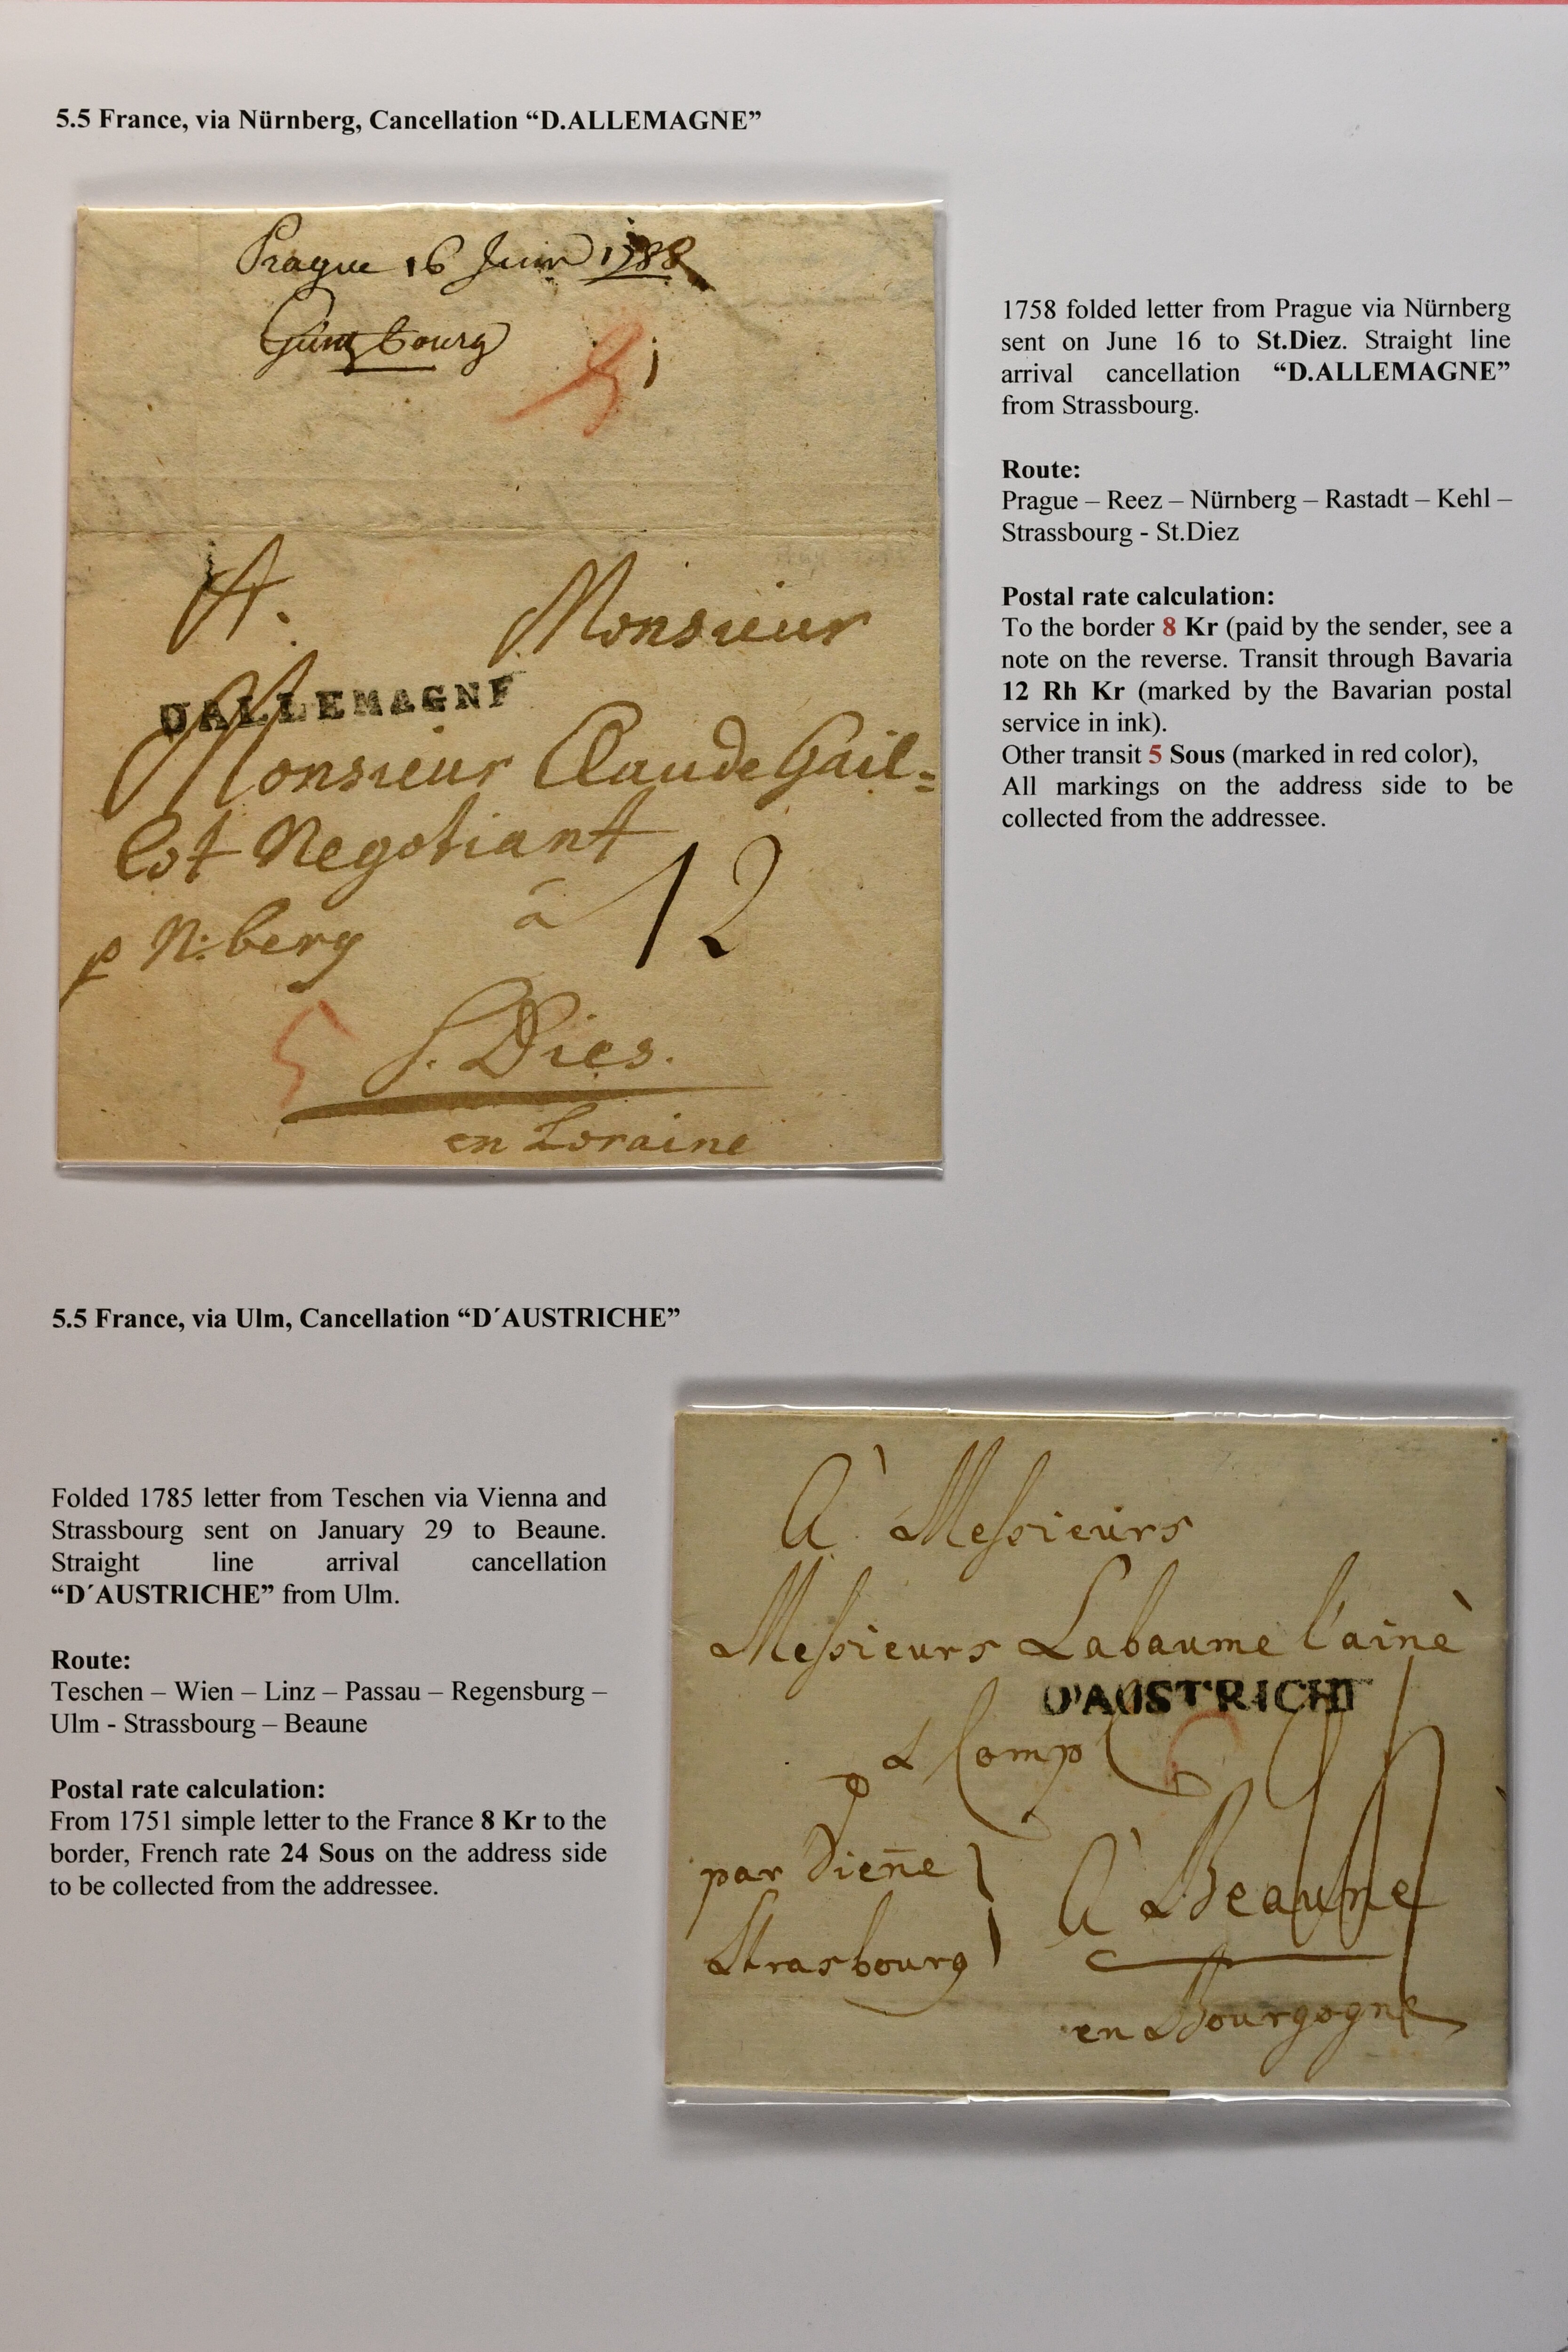 5.5 France, via Nürnberg, Cancellation “D.ALLEMAGNE”
Prague 16 Juin 1788
Guntzbourg
8
A. Monsieur
DALLEMAGNE
Monsieur Claude Gail=
lot Negotiant
p N:berg à 12
5 S. Dies.
en Loraine
1758 folded letter from Prague via Nürnberg
sent on June 16 to St.Diez. Straight line
arrival cancellation “D.ALLEMAGNE”
from Strassbourg.
Route:
Prague – Reez – Nürnberg – Rastadt – Kehl –
Strassbourg - St.Diez
Postal rate calculation:
To the border 8 Kr (paid by the sender, see a
note on the reverse. Transit through Bavaria
12 Rh Kr (marked by the Bavarian postal
service in ink).
Other transit 5 Sous (marked in red color),
All markings on the address side to be
collected from the addressee.
5.5 France, via Ulm, Cancellation “D´AUSTRICHE”
Folded 1785 letter from Teschen via Vienna and
Strassbourg sent on January 29 to Beaune.
Straight line arrival cancellation
“D´AUSTRICHE” from Ulm.
Route:
Teschen – Wien – Linz – Passau – Regensburg –
Ulm - Strassbourg – Beaune
Postal rate calculation:
From 1751 simple letter to the France 8 Kr to the
border, French rate 24 Sous on the address side
to be collected from the addressee.
À Messieurs
Messieurs Labaume l'ainè
D'AUSTRICHE
& Comp
par Vieñe
Strasbourg
À Beaune
en Bourgogne